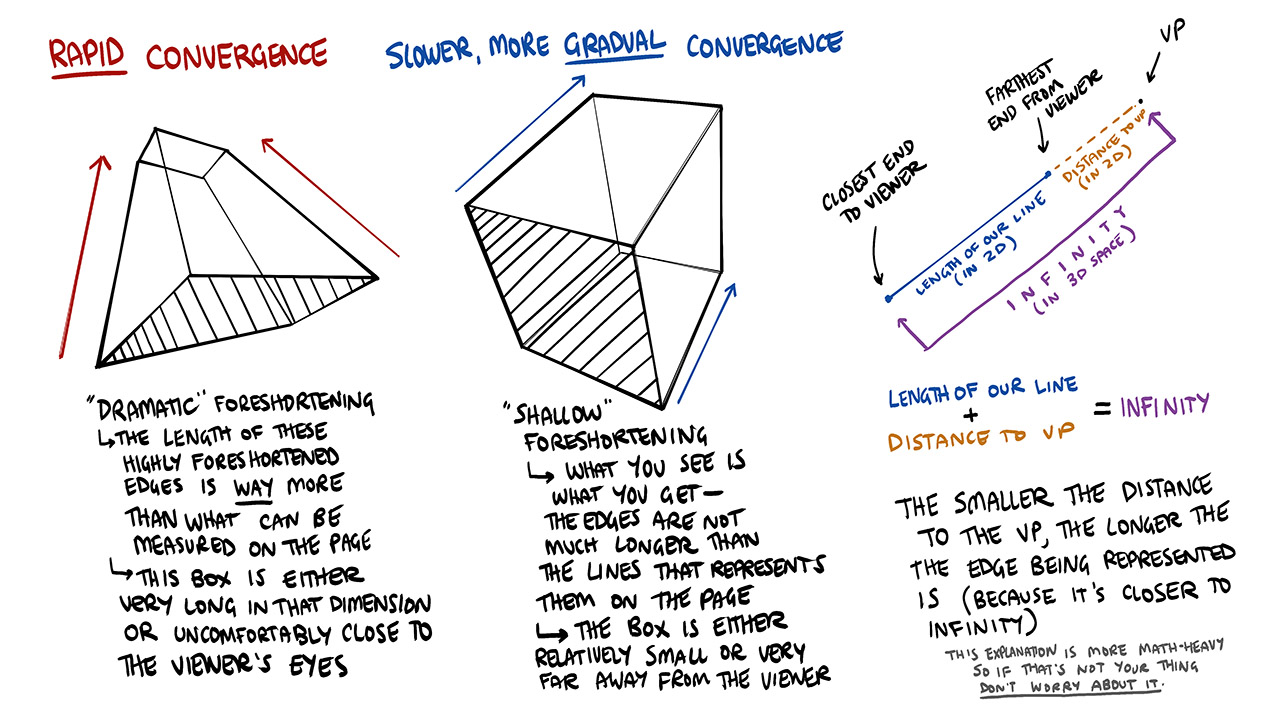 RAPID CONVERGENCE
"DRAMATIC" FORESHORTENING
THE LENGTH OF THESE
HIGHLY FORESHORTENED
EDGES IS WAY MORE
THAN WHAT CAN BE
MEASURED ON THE PAGE
THIS BOX IS EITHER
VERY LONG IN THAT DIMENSION
OR UNCOMFORTABLY CLOSE TO
THE VIEWER'S EYES
SLOWER, MORE GRADUAL CONVERGENCE
"SHALLOW"
FORESHORTENING
WHAT YOU SEE IS
WHAT YOU GET—
THE EDGES ARE NOT
MUCH LONGER THAN
THE LINES THAT REPRESENTS
THEM ON THE PAGE
THE BOX IS EITHER
RELATIVELY SMALL OR VERY
FAR AWAY FROM THE VIEWER
VP
FARTHEST
END FROM
VIEWER
CLOSEST END
TO VIEWER
DISTANCE TO VP
(IN 2D)
LENGTH OF OUR LINE
(IN 2D)
INFINITY
(IN 3D SPACE)
LENGTH OF OUR LINE
+
DISTANCE TO VP
= INFINITY
THE SMALLER THE DISTANCE
TO THE VP, THE LONGER THE
THE EDGE BEING REPRESENTED
IS (BECAUSE IT'S CLOSER TO
INFINITY)
THIS EXPLANATION IS MORE MATH-HEAVY
SO IF THAT'S NOT YOUR THING
DON'T WORRY ABOUT IT.